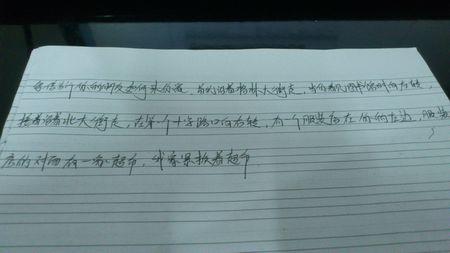 告诉你的朋友如何来你家，首先沿着格林大街走，当你看见图书馆时向左转，
接着沿着北大街走，在第一个十字路口向右转，有个服装店在你的左边，服装
店的对面有一家超市，我家紧挨着超市